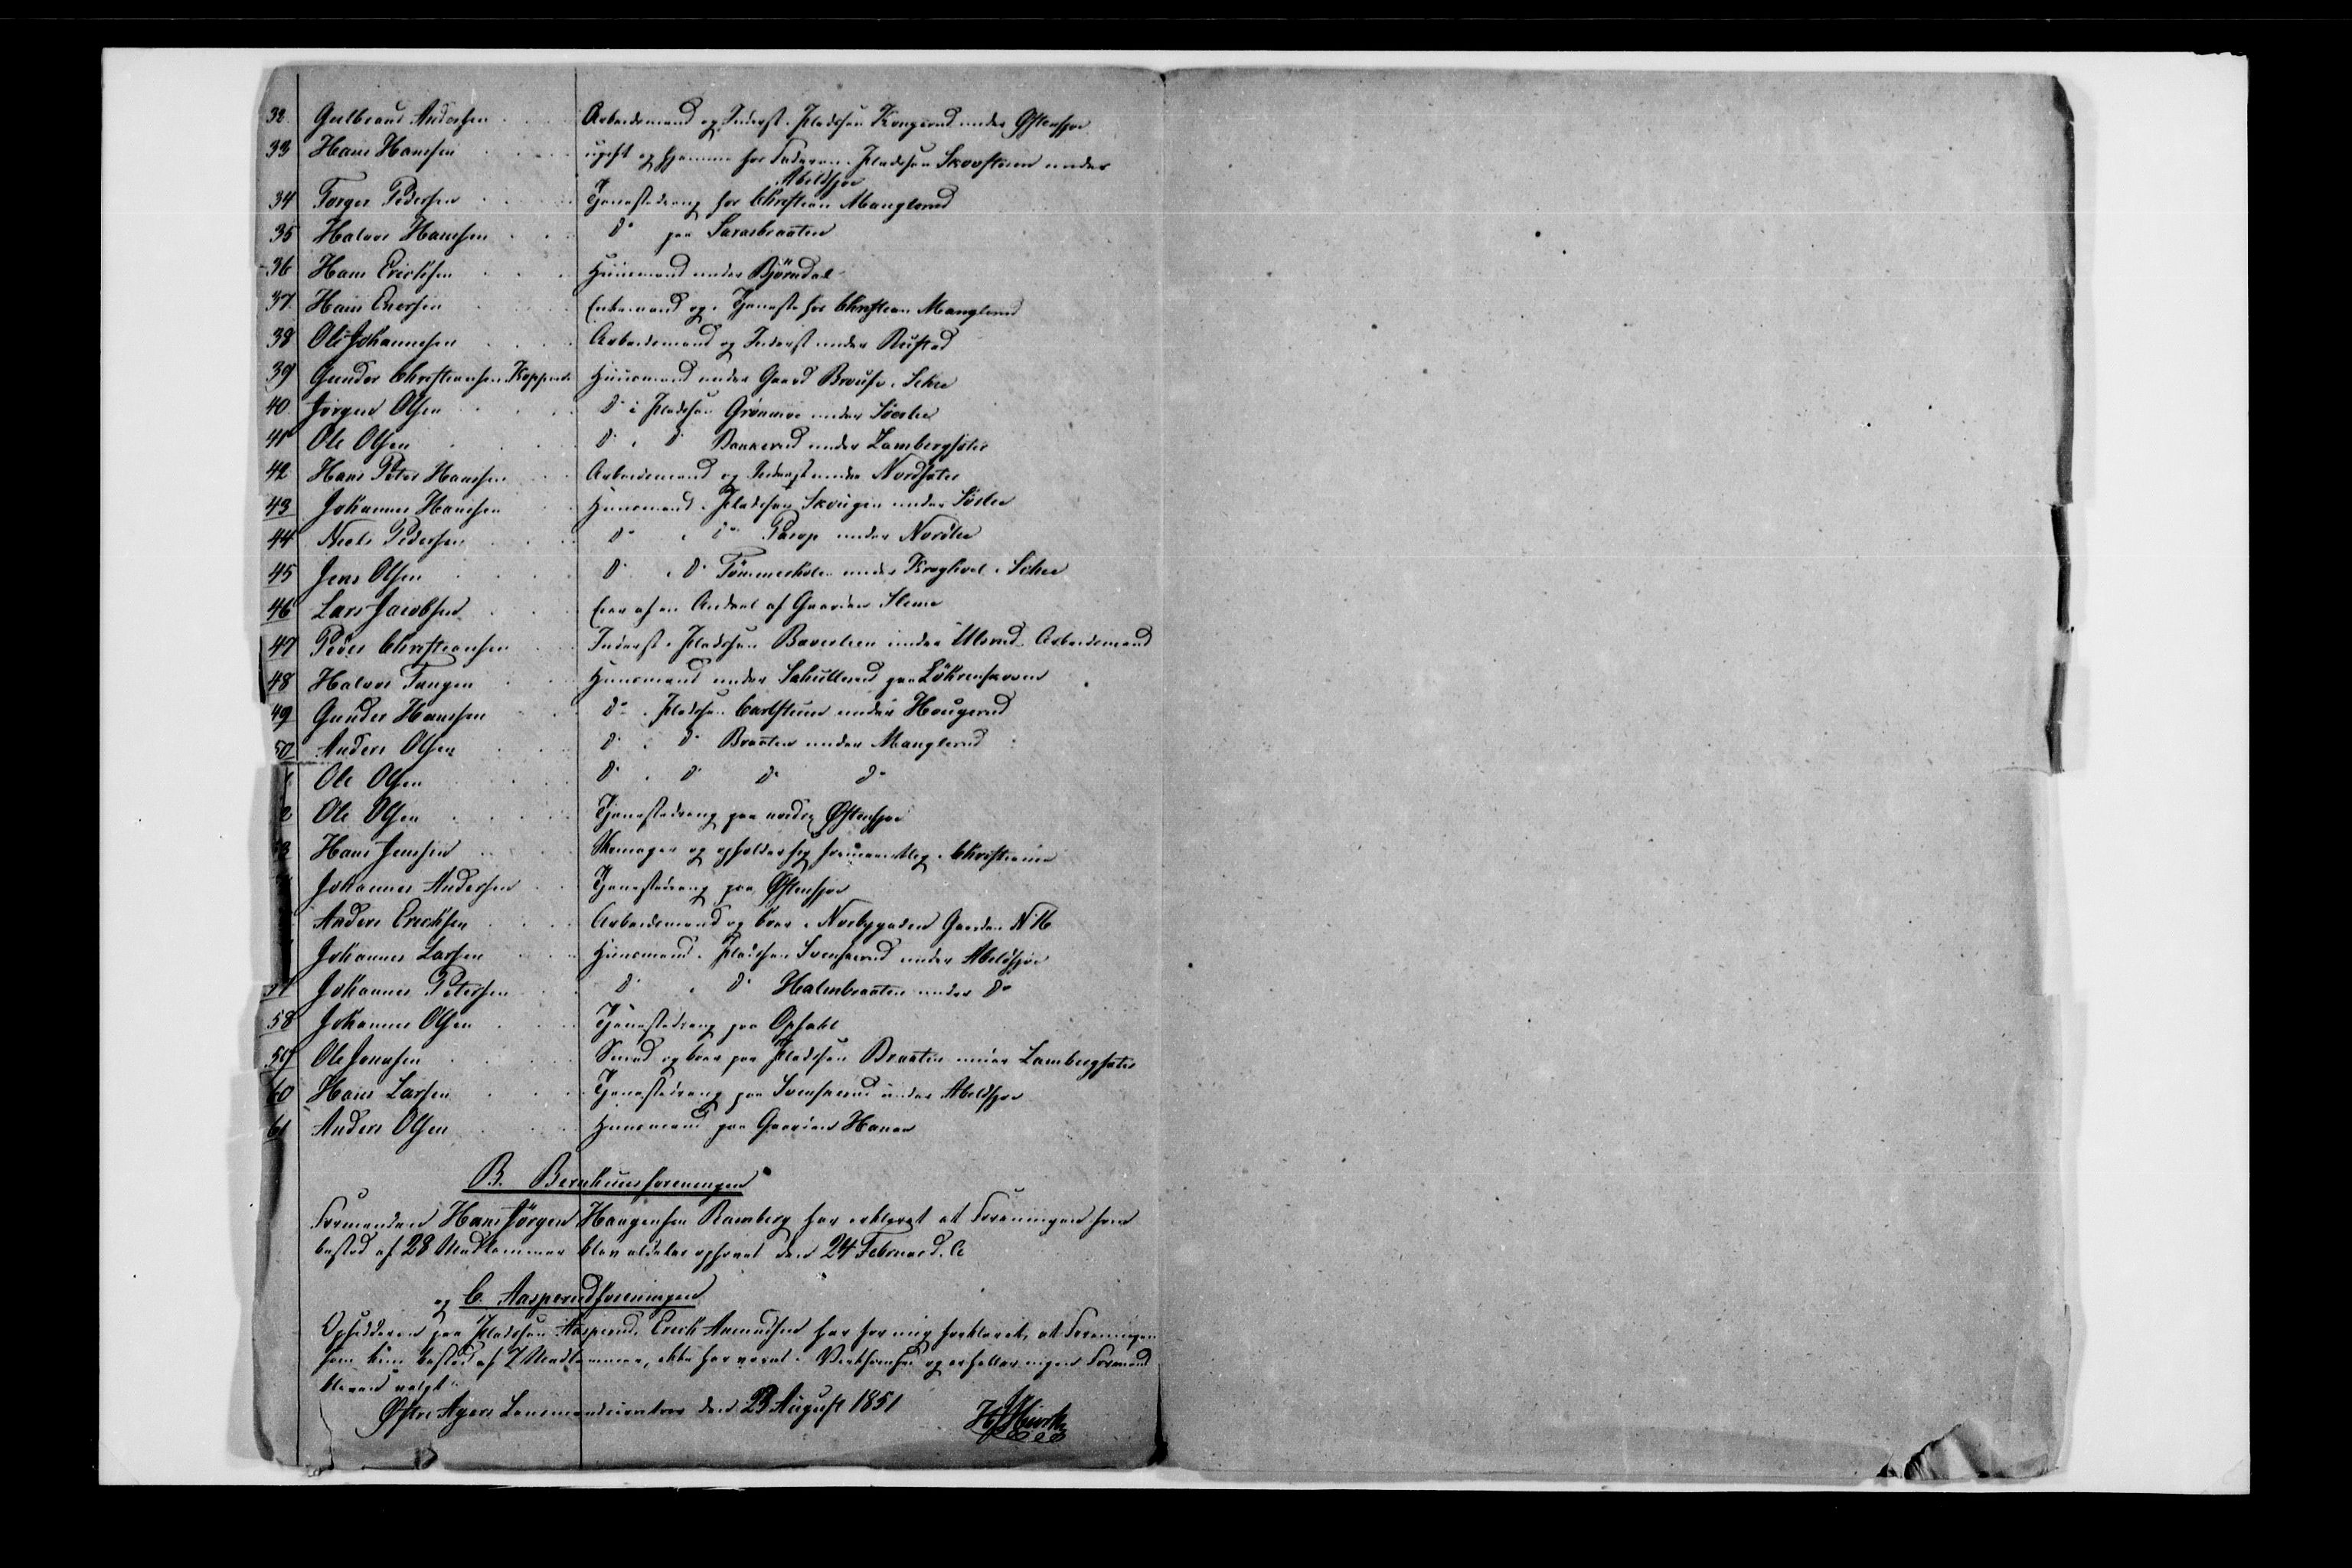 32 Gulbrand Andersen Arbeidsmand og Inderst i Pladsen Kongerud under Østensjøe
33 Hans Hansen ugift og hjemme hos Faderen i Pladsen Skovstuen under
Abildsøe
34 Torger Pedersen Tjenestedreng hos Christian Manglerud
35 Halvor Hansen Do paa Sarabraaten
36 Hans Ericksen Huusmand under Bjørndal
37 Hans Eversen Enkemand og i Tjeneste hos Christian Manglerud
38 Ole Johannesen Arbeidsmand og Inderst under Rustad
39 Gunder Christiansen Koppers Huusmand under Gaard Brouse i Schee
40 Jørgen Olsen Do i Pladsen Grønmoe under Søelie
41 Ole Olsen Do i Do Bakkerud under Lambergsæter
42 Hans Peter Hansen Arbeidsmand og Inderst under Nordsæter
43 Johannes Hansen Huusmand i Pladsen Skougen under Sølie
44 Niels Pedersen Do i Do under Nordlie
45 Jens Olsen Do i Do Tømmerholen under Kroghvol i Schee
46 Lars Jacobsen Eier af en Andeel af Gaarden
47 Peder Christiansen Inderst i Pladsen Baverlien under Ulsrud Arbeidsmand
48 Halvor Tangen Huusmand under Schullerud paa Løkenskoven
49 Gunder Hansen Do i Pladsen Carlstuen under Hougerud
50 Anders Olsen Do i Do Braaten under Manglerud
1 Ole Olsen Do i Do Do Do
2 Ole Olsen Tjenestedreng paa nordre Østensjøe
3 Hans Jensen Skomager og opholder sig i Christiania
Johannes Andersen Tjenestedreng paa Østensjøe
Anders Ericksen Arbeidsmand og boer i Norbygaden Gaarden No 16
Johannes Larsen Huusmand i Pladsen Svenskerud under Abildsjøe
57 Johannes Petersen Do i Do Halmbraaten under Do
58 Johannes Olsen Tjenestedreng paa Opsahl
59 Ole Jensen Smed og boer paa Pladsen Braaten under Lambergsæter
60 Hans Larsen Tjenestedreng paa Svenskerud under Abildsjøe
61 Anders Olsen Huusmand paa Gaarden Hauer
B. Bernhuusforeningen
Formanden Hans Jørgen Haagensen Ramberg har erklæret at Foreningen som
bestod af 28 Medlemmer blev aldeles ophævet den 24 Februar d. A
og C. Aasperudforeningen
Opsidderen paa Pladsen Aasperud, Erick Amundsen har for mig forklaret, at Foreningen
som kun bestod af 7 Medlemmer, ikke har været i Virksomhed og er heller ingen Formand
bleven valgt.
Østre Agers Lensmandscontor den 23 August 1851